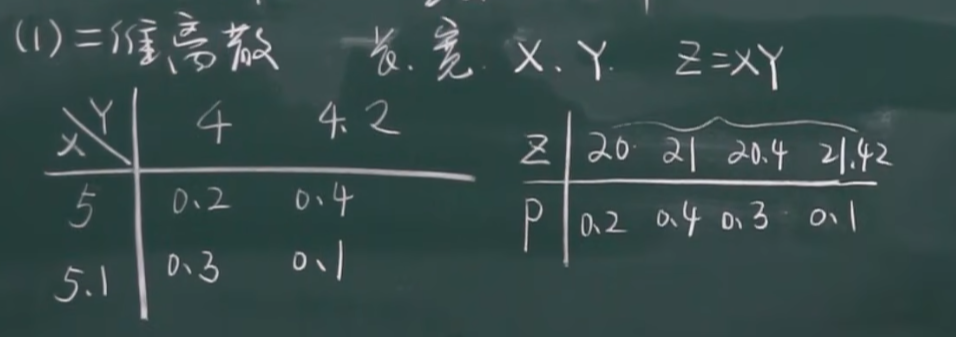 (1)二维离散 长.宽. X.Y. Z=XY
X\Y 4 4.2
5 0.2 0.4
5.1 0.3 0.1
Z 20 21 20.4 21.42
P 0.2 0.4 0.3 0.1